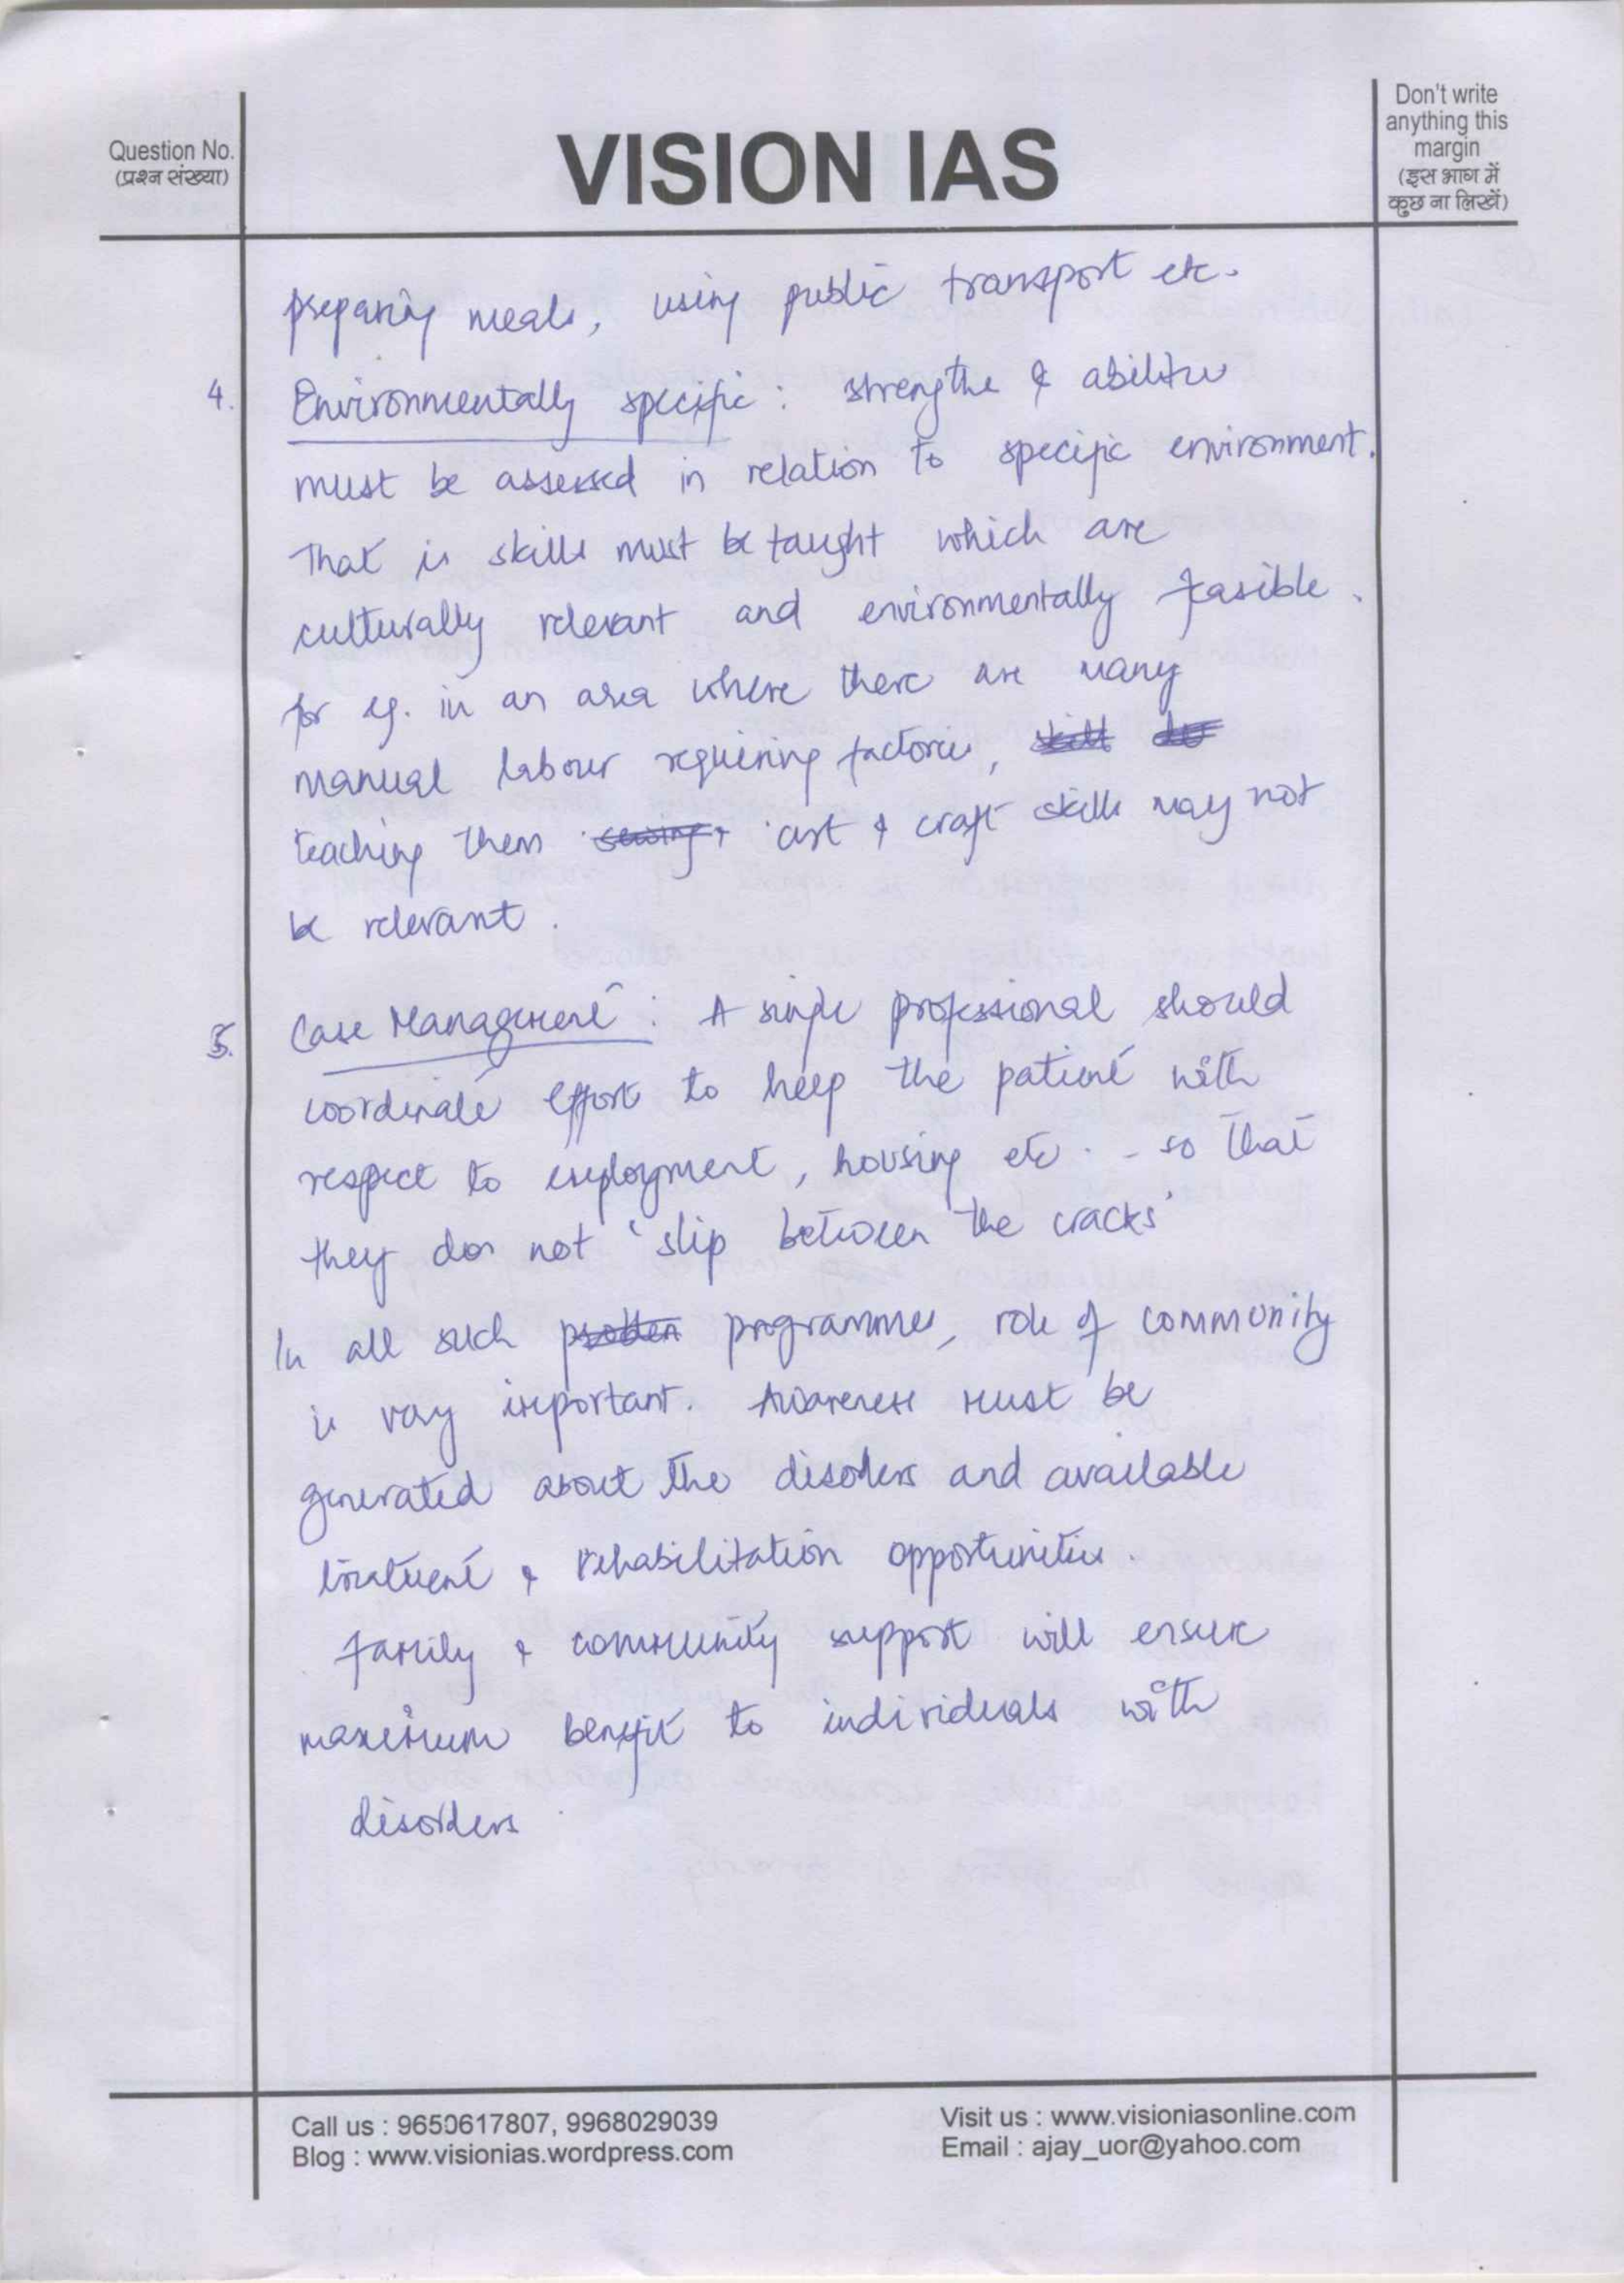 Question No.
(प्रश्न संख्या)
VISION IAS
Don't write
anything this
margin
(इस भाग में
कुछ ना लिखें)
preparing meals, using public transport etc.
4. Environmentally specific : strengths & abilities
must be assessed in relation to specific environment.
That is skills must be taught which are
culturally relevant and environmentally feasible.
for eg. in an area where there are many
manual labour requiring factories, skill
teaching them sewing, art & craft skills may not
be relevant.
5. Case Management : A single professional should
coordinate effort to help the patient with
respect to employment, housing etc. - so that
they do not 'slip between the cracks'
In all such programmes, role of community
is very important. Awareness must be
generated about the disorders and available
treatment & rehabilitation opportunities.
family & community support will ensure
maximum benefit to individuals with
disorders.
Call us : 9650617807, 9968029039
Blog : www.visionias.wordpress.com
Visit us : www.visioniasonline.com
Email : ajay_uor@yahoo.com